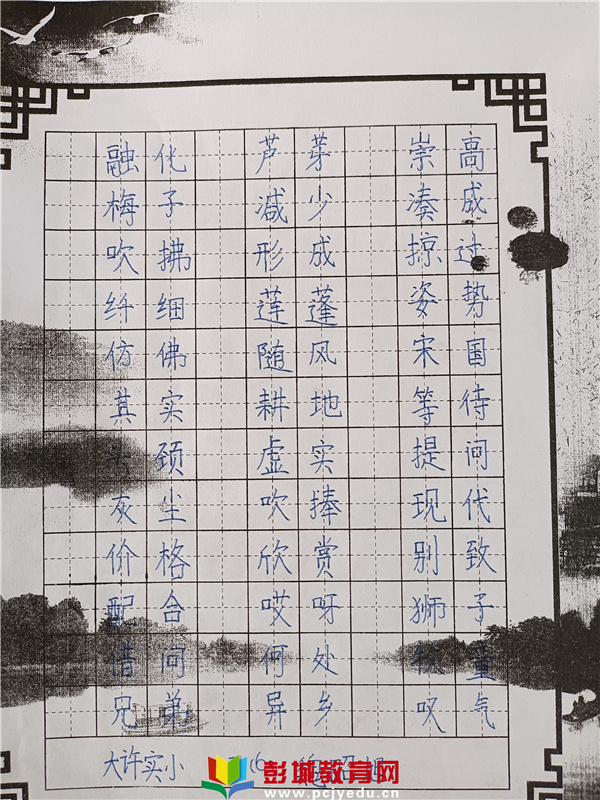 融化 芦芽 崇高
梅子 减少 凑成
吹拂 形成 掠过
纤细 莲蓬 姿势
仿佛 随风 宋国
其实 耕地 等待
头颈 虚实 提问
灰尘 吹捧 现代
价格 欣赏 别致
配合 哎呀 狮子
借问 何处 重
兄弟 异乡 叹气
大许实小
彭城教育网
www.pcjyedu.cn